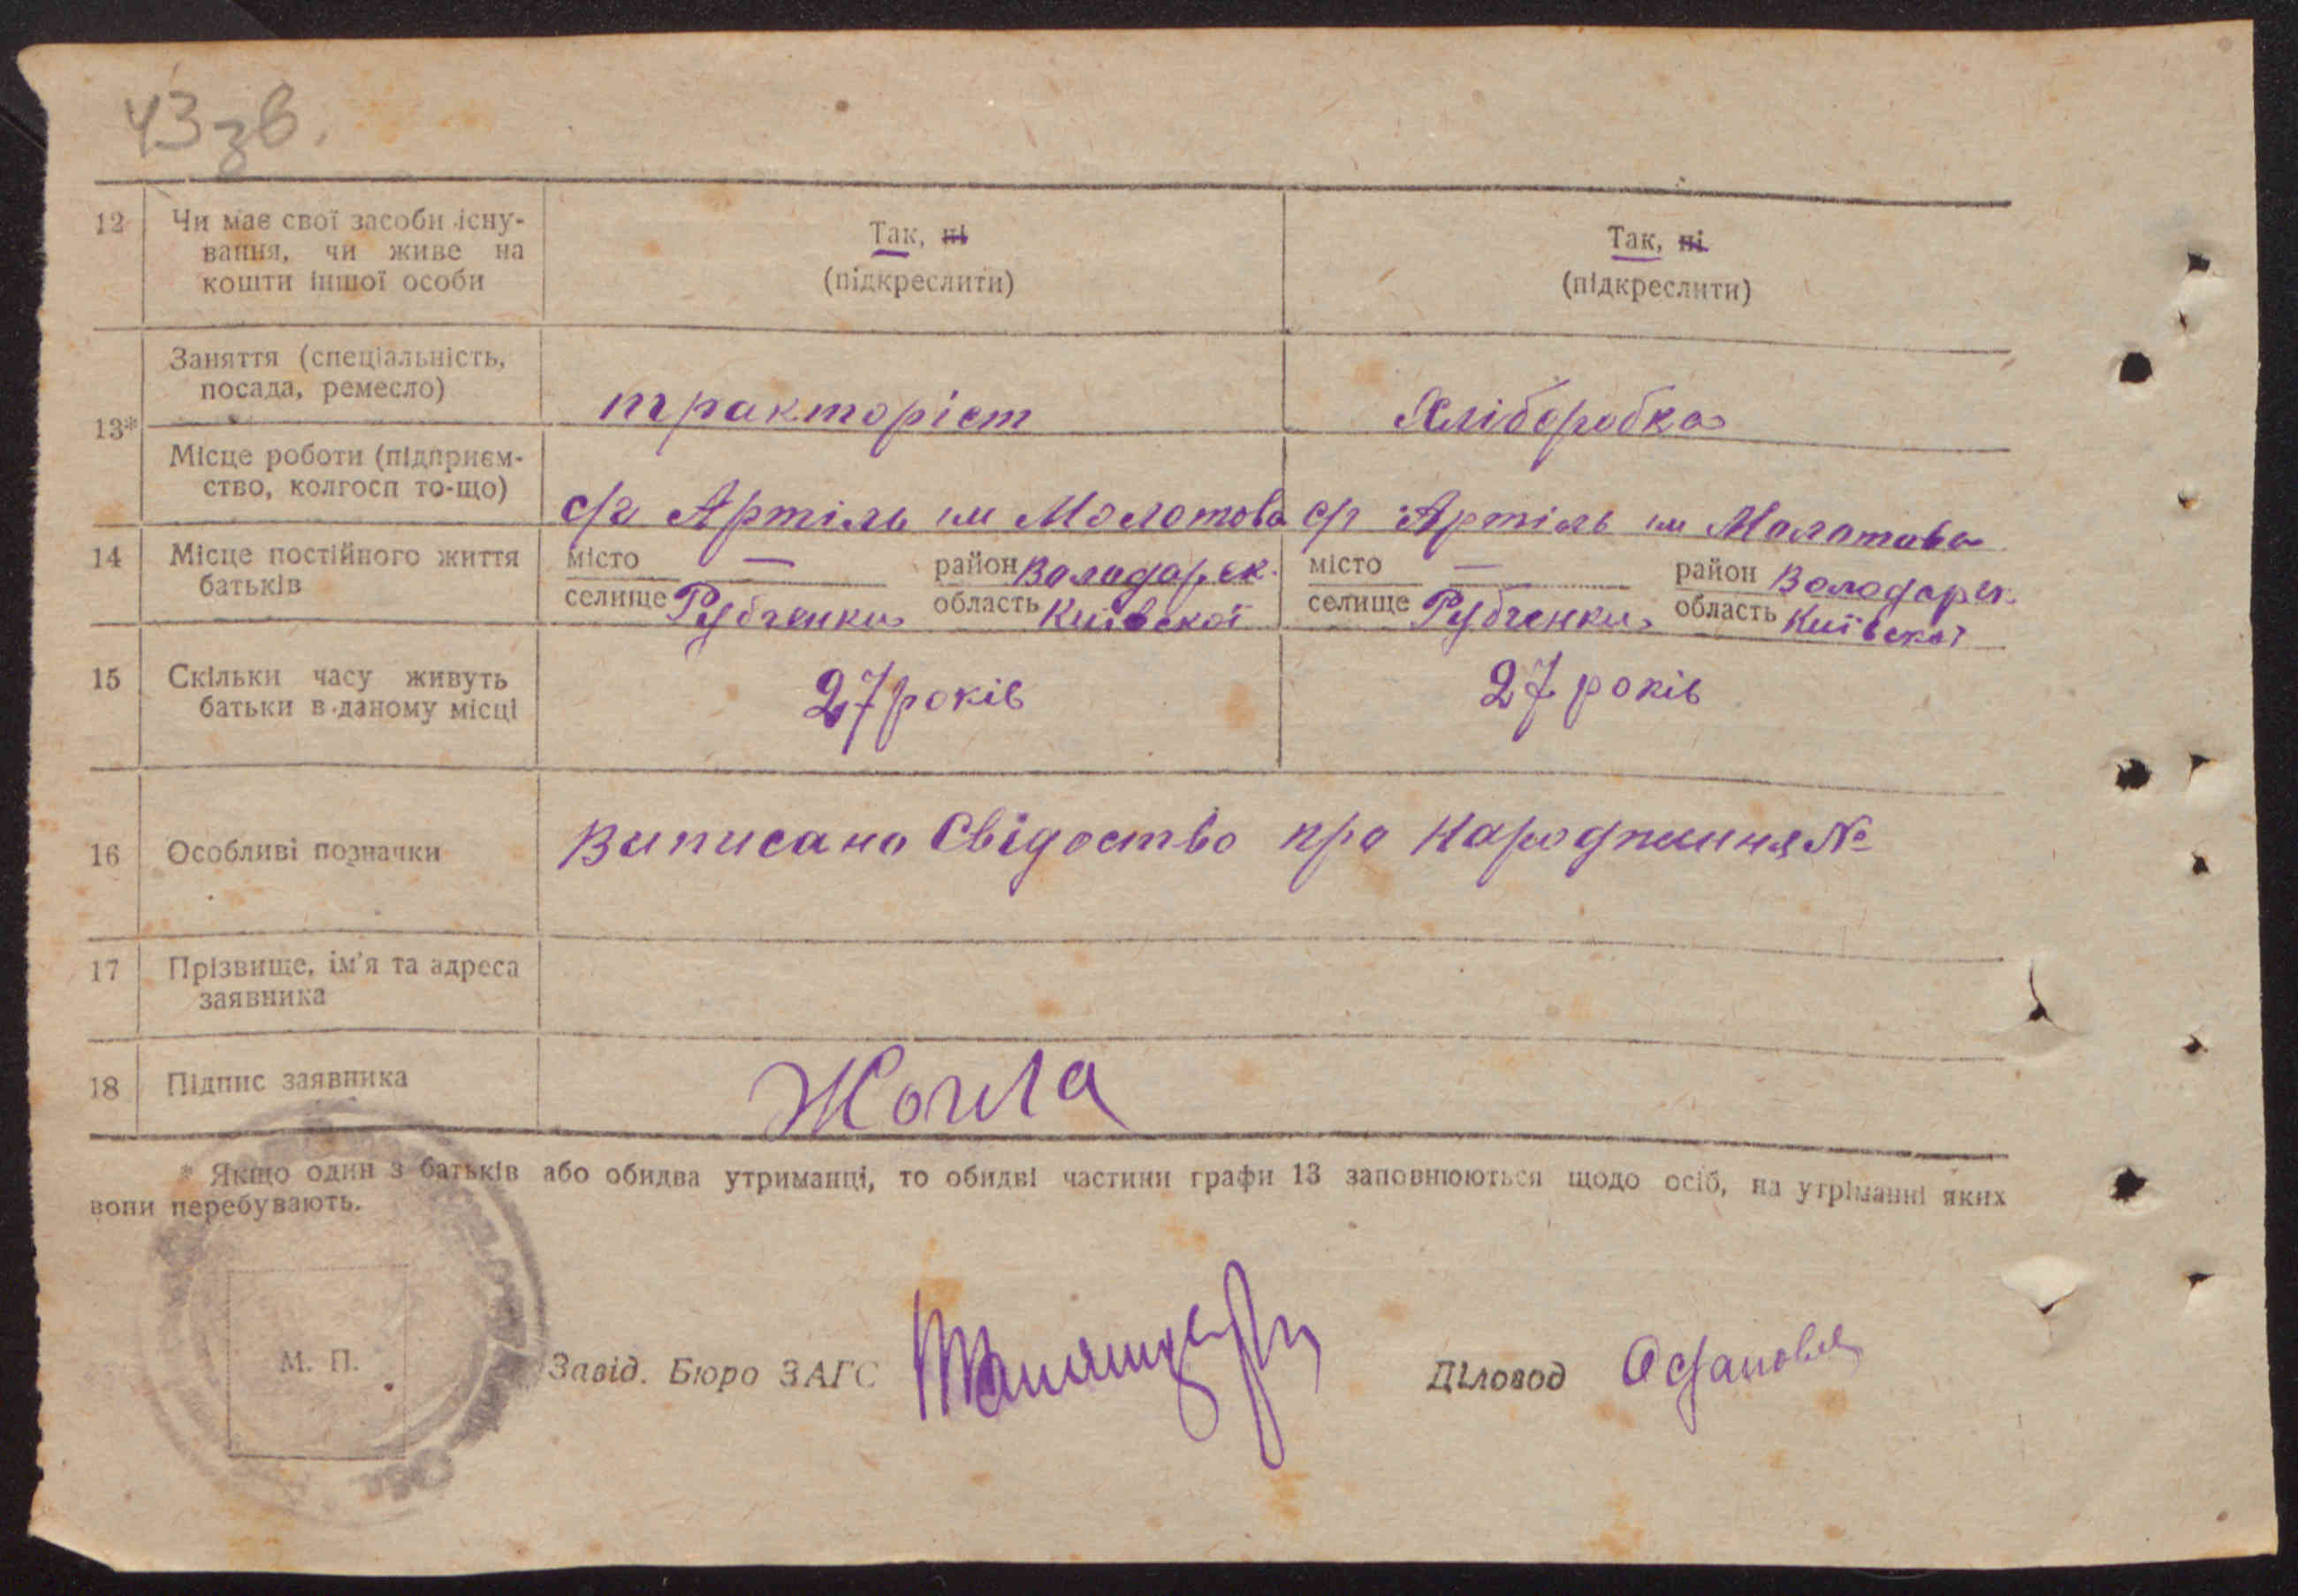 43 зв.
12 Чи має свої засоби існу-
вання, чи живе на
кошти іншої особи
Так, ні
(підкреслити)
Так, ні
(підкреслити)
13*
Заняття (спеціальність,
посада, ремесло)
тракторіст
Хліборобка
Місце роботи (підприєм-
ство, колгосп то-що)
с/г Артіль ім Молотова
с/г Артіль ім Молотова
14 Місце постійного життя
батьків
місто — район Володарск.
селище Рубченки область Київскої
місто — район Володарск.
селище Рубченки область Київскої
15 Скільки часу живуть
батьки в даному місці
27 років
27 років
16 Особливі позначки
Виписано Свідоство про народження №
17 Прізвище, ім'я та адреса
заявника
18 Підпис заявника
* Якщо один з батьків або обидва утриманці, то обидві частини графи 13 заповнюються щодо осіб, на утріманні яких
вони перебувають.
М. П.
Завід. Бюро ЗАГС
Діловод